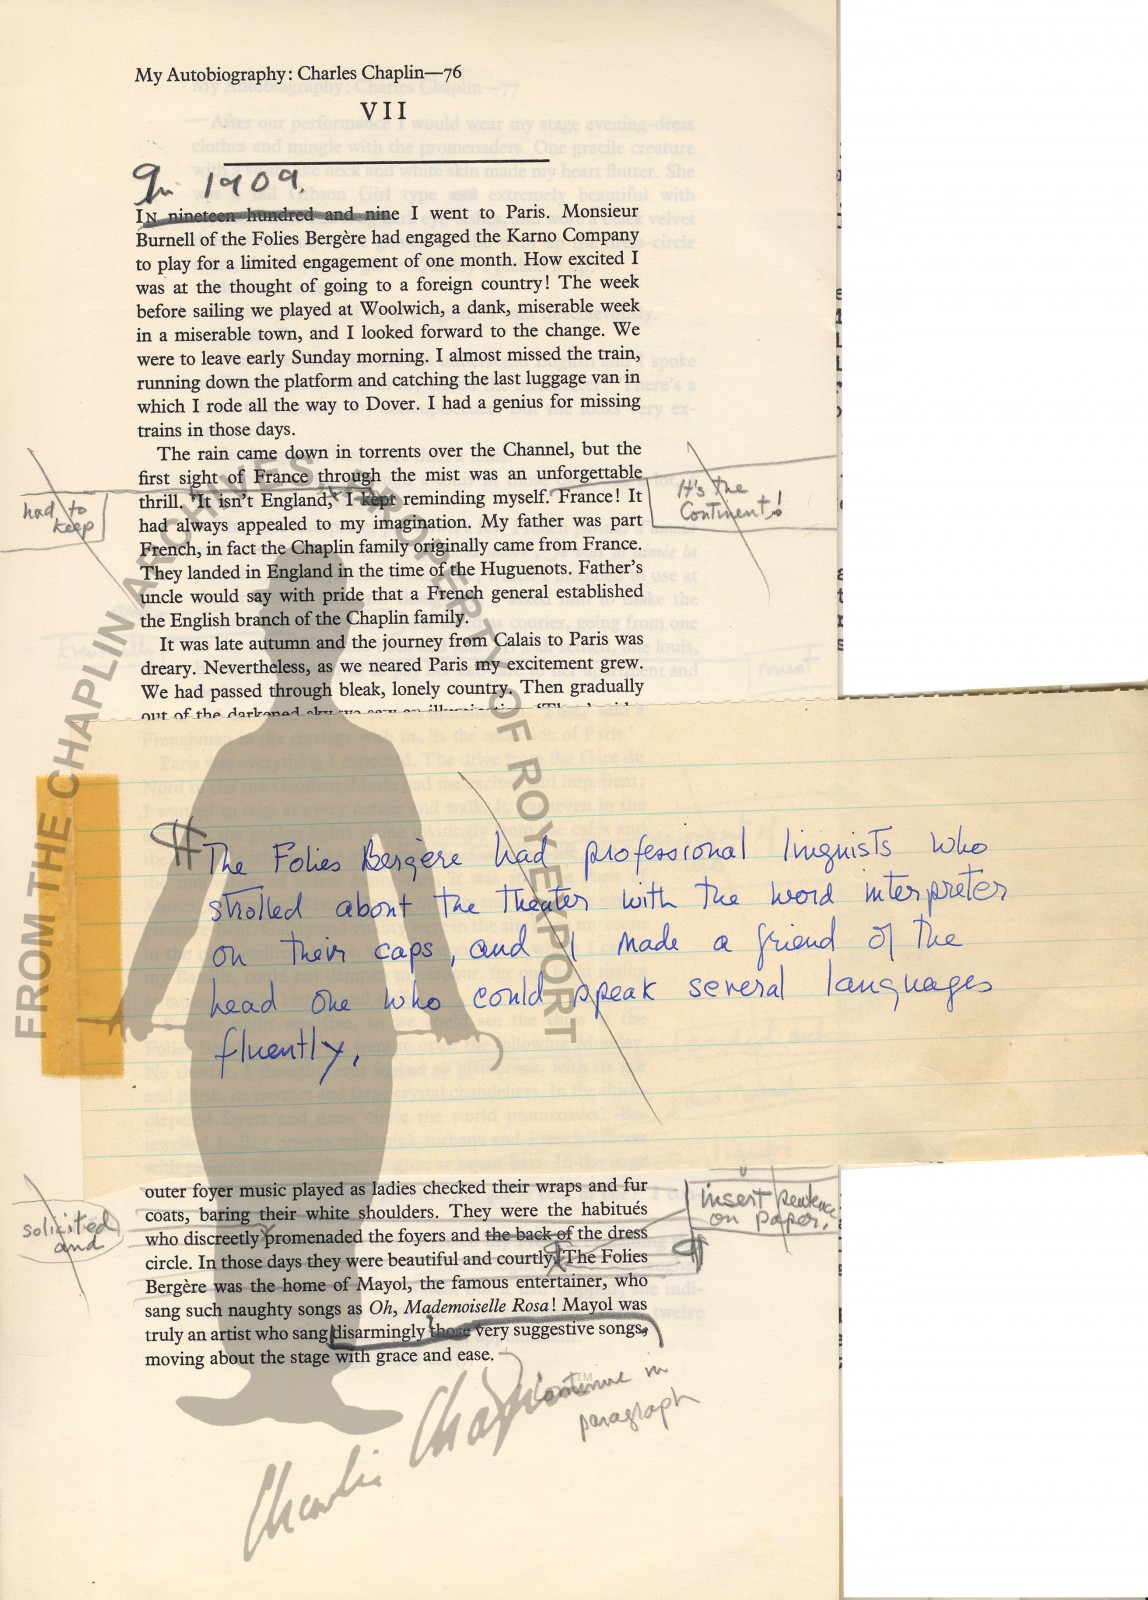 My Autobiography: Charles Chaplin—76
VII
In 1909.
IN nineteen hundred and nine I went to Paris. Monsieur
Burnell of the Folies Bergère had engaged the Karno Company
to play for a limited engagement of one month. How excited I
was at the thought of going to a foreign country! The week
before sailing we played at Woolwich, a dank, miserable week
in a miserable town, and I looked forward to the change. We
were to leave early Sunday morning. I almost missed the train,
running down the platform and catching the last luggage van in
which I rode all the way to Dover. I had a genius for missing
trains in those days.
The rain came down in torrents over the Channel, but the
first sight of France through the mist was an unforgettable
thrill. 'It isn't England,' I kept reminding myself. 'France! It
had always appealed to my imagination. My father was part
French, in fact the Chaplin family originally came from France.
They landed in England in the time of the Huguenots. Father's
uncle would say with pride that a French general established
the English branch of the Chaplin family.
had to
keep
It's the
Continent!
It was late autumn and the journey from Calais to Paris was
dreary. Nevertheless, as we neared Paris my excitement grew.
We had passed through bleak, lonely country. Then gradually
out of the darkened sky we saw an
must
¶ The Folies Bergère had professional linguists who
strolled about the theater with the word interpreter
on their caps, and I made a friend of the
head one who could speak several languages
fluently.
outer foyer music played as ladies checked their wraps and fur
coats, baring their white shoulders. They were the habitués
who discreetly promenaded the foyers and the back of the dress
circle. In those days they were beautiful and courtly. ¶ The Folies
Bergère was the home of Mayol, the famous entertainer, who
sang such naughty songs as Oh, Mademoiselle Rosa! Mayol was
truly an artist who sang disarmingly those very suggestive songs,
moving about the stage with grace and ease.
solicited
and
insert sentence
on paper.
¶
continue in
paragraph
FROM THE CHAPLIN ARCHIVES, PROPERTY OF ROY EXPORT
Charlie Chaplin TM